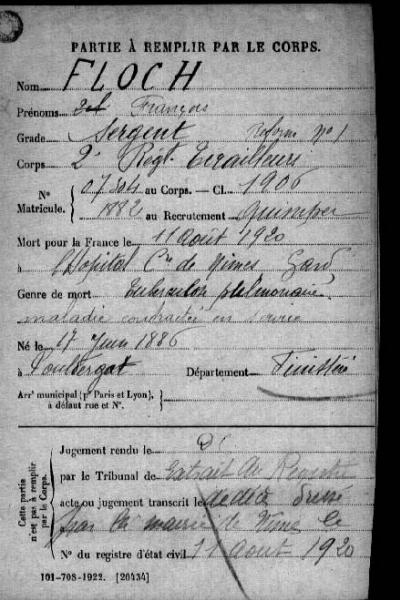 PARTIE À REMPLIR PAR LE CORPS.
Nom FLOCH
Prénoms François
Grade Sergent Réforme No 1
Corps 2e Régt Tirailleurs
No Matricule. 07504 au Corps. — Cl. 1906
1882 au Recrutement Quimper
Mort pour la France le 11 août 1920
à l'Hôpital Cre de Nimes Gard
Genre de mort Tuberculose pulmonaire
maladie contractée en service
Né le 17 Juin 1886
à Pouldergat Département Finistère
Arrt municipal (pr Paris et Lyon), à défaut rue et No.
Cette partie n'est pas à remplir par le Corps.
Jugement rendu le
par le Tribunal de Extrait du Registre
acte ou jugement transcrit le de décès dressé
par la mairie de Nime le
No du registre d'état civil 11 août 1920
101-708-1922. [26434]